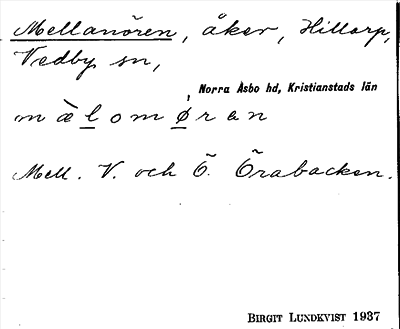 Mellanören, åker, Hillarp,
Vedby sn,
Norra Åsbo hd, Kristianstads län
mæ̀lomøran
Mell. V. och Ö. Örabacken.
BIRGIT LUNDKVIST 1937